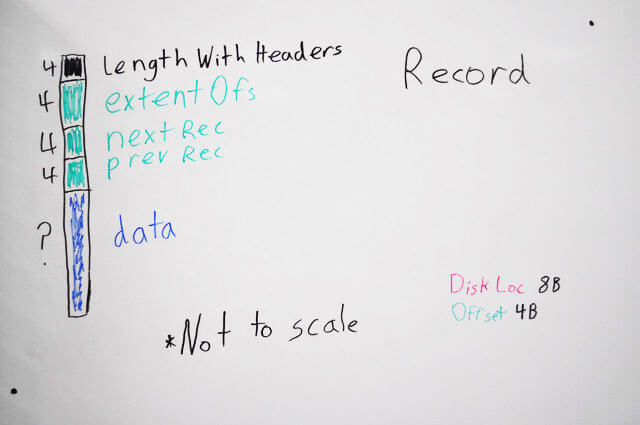 Record
4 Length With Headers
4 extentOfs
4 nextRec
4 prev Rec
? data
DiskLoc 8B
Offset 4B
*Not to scale